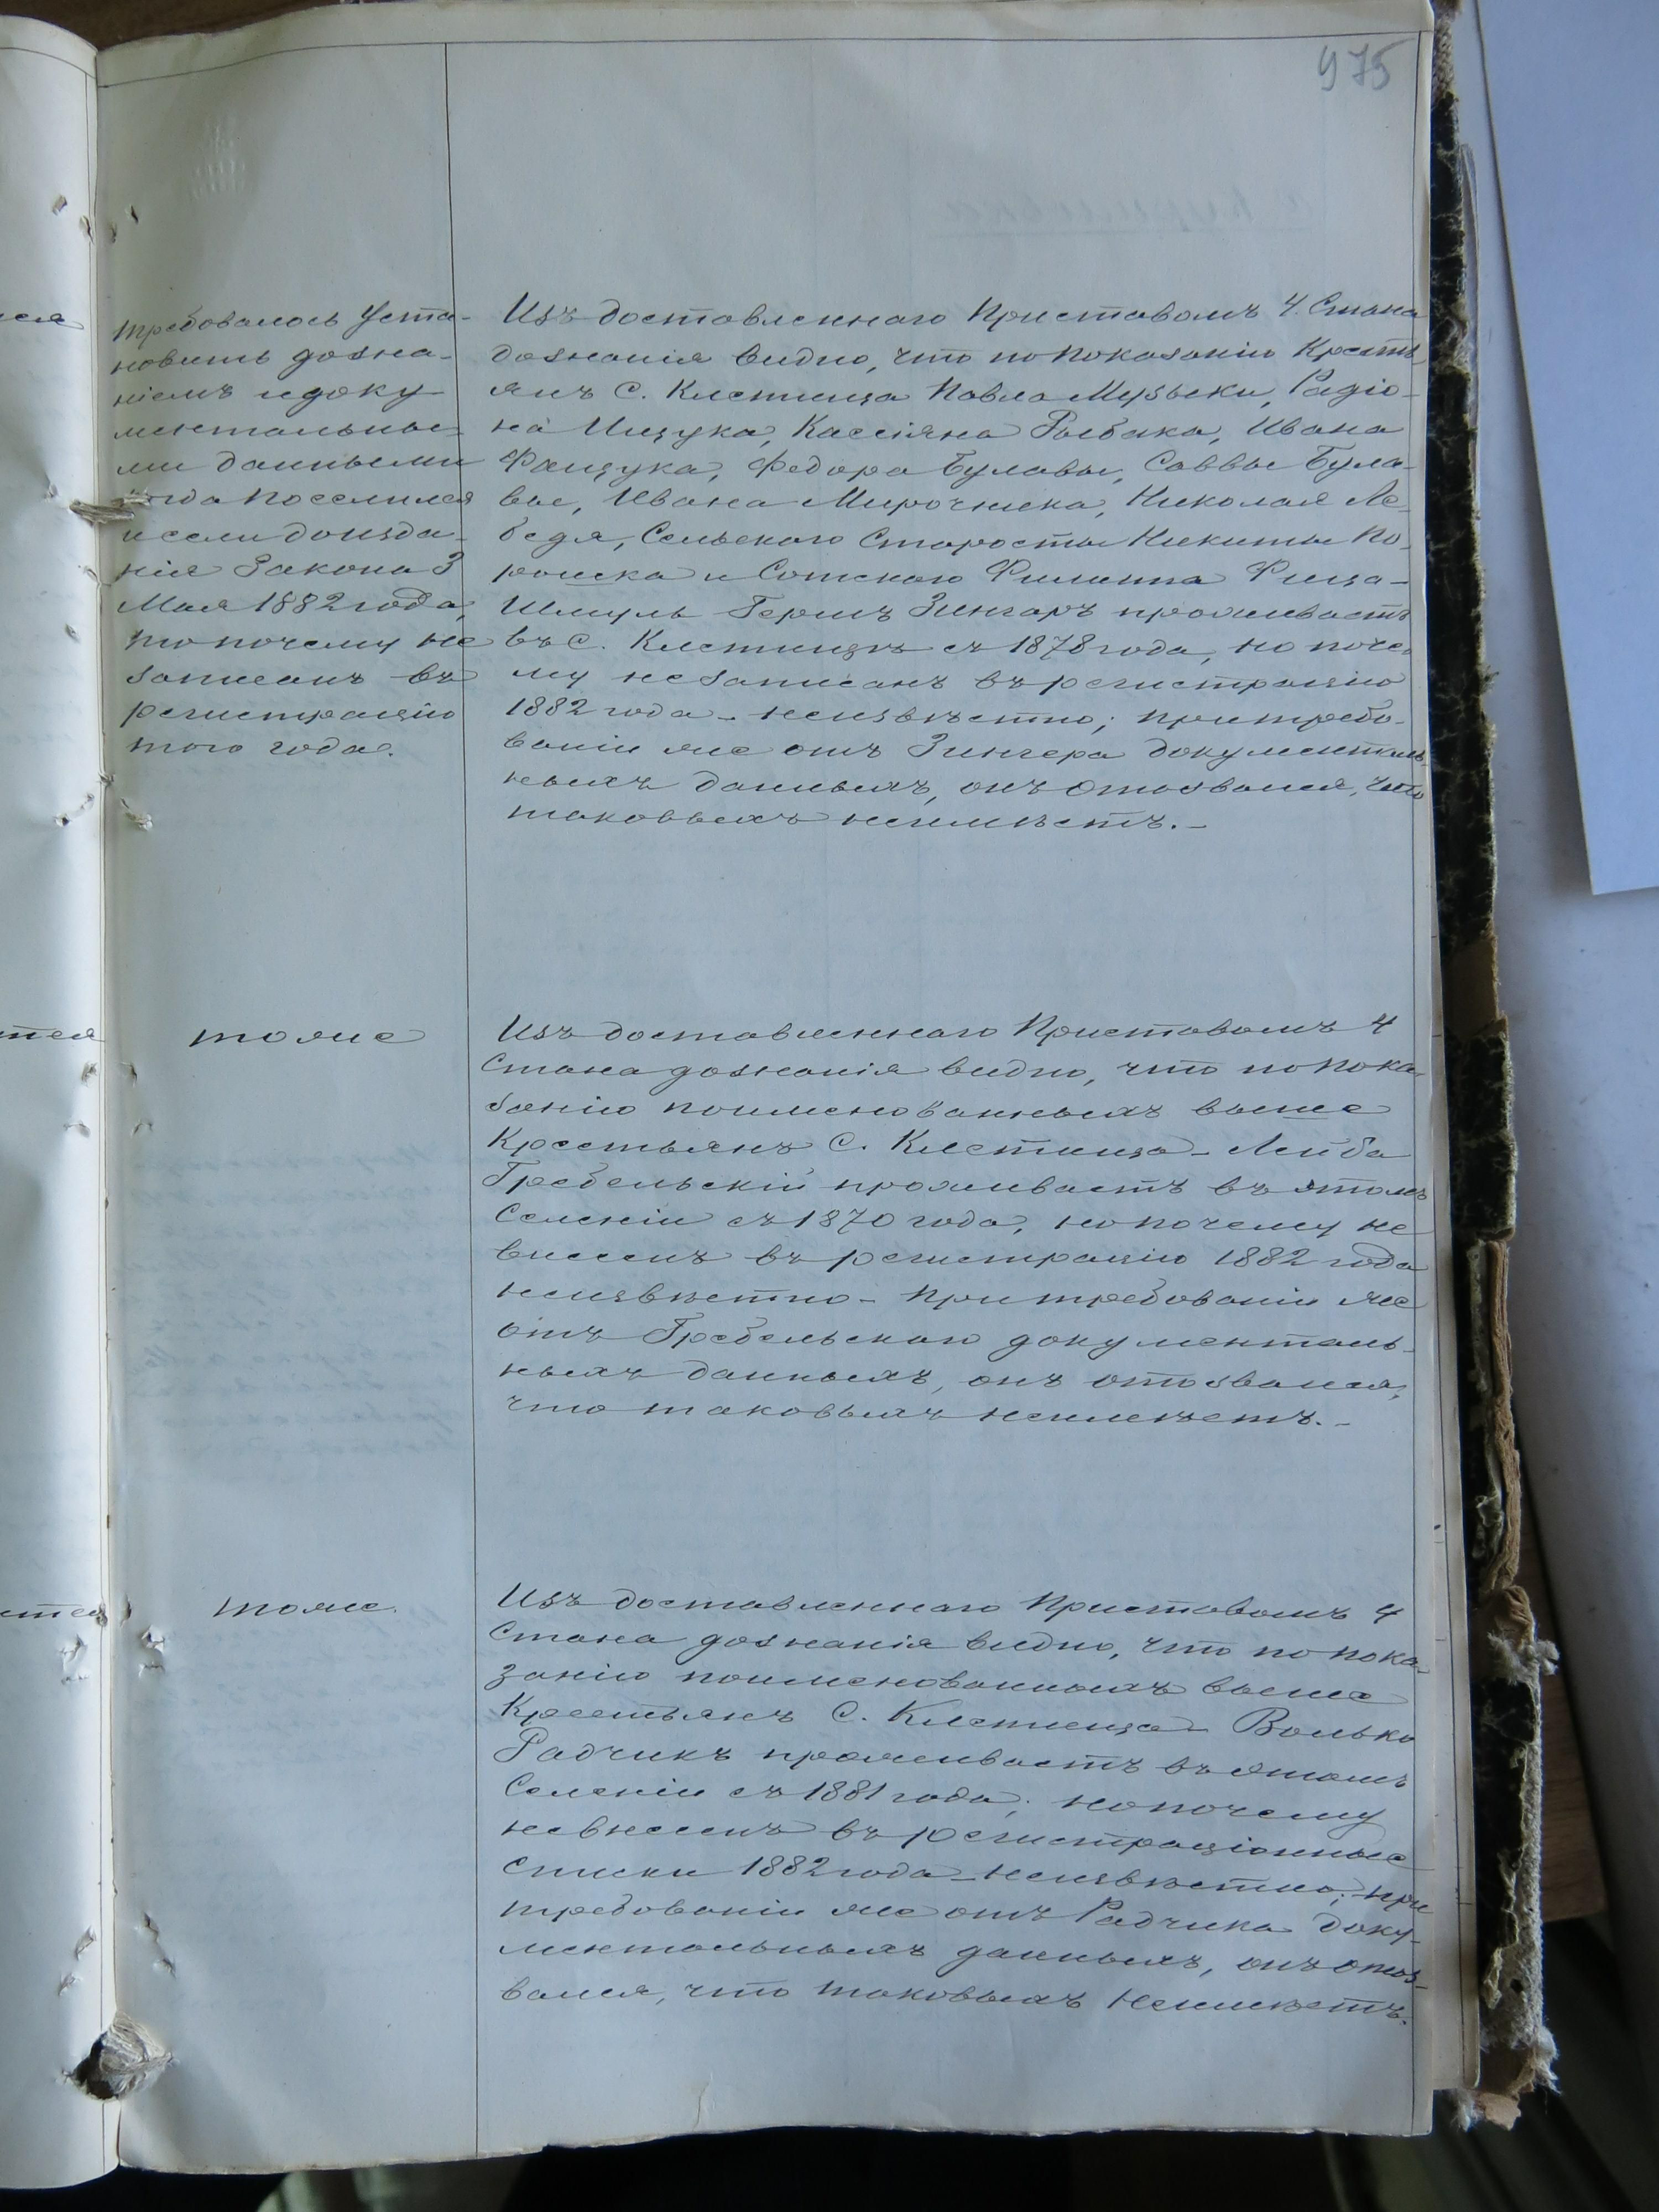 975
требовалось уста-
новить дозна-
ніемъ и доку-
ментальны-
ми данными
когда поселился
и если до изда-
нія Закона 3
Мая 1882 года,
то почему не
записанъ въ
регистрацію
того года.
Изъ доставленнаго Приставомъ 4. Стана
дознанія видно, что по показанію Кресть
янъ С. Клетища Павла Музыки, Радіо-
на Ищука, Кассіяна Рыбака, Ивана
Фащука, Федора Булавы, Саввы Була-
вы, Ивана Мирочника, Николая Ле-
бедя, Сельскаго Старосты Никиты По-
роика и Сотскаго Филиппа Фица-
Шмуль Герша Зингаръ проживаетъ
въ С. Клетищѣ съ 1878 года, но поче-
му не записанъ въ регистрацію
1882 года - неизвѣстно; при требо-
ваніи же отъ Зингера документаль-
ныхъ данныхъ, онъ отозвался, что
таковыхъ неимѣетъ. -
тоже
Изъ доставленнаго Приставомъ 4
Стана дознанія видно, что по пока-
занію поименованныхъ выше
Крестьянъ С. Клетища - Лейба
Гребельскій проживаетъ въ этомъ
Селеніи съ 1870 года, но почему не
внесенъ въ регистрацію 1882 года
неизвѣстно - при требованіи же
отъ Гребельскаго документаль-
ныхъ данныхъ, онъ отозвался,
что таковыхъ неимѣетъ. -
тоже.
Изъ доставленнаго Приставомъ 4
Стана дознанія видно, что по пока-
занію поименованныхъ выше
Крестьянъ С. Клетища - Волько
Радчикъ проживаетъ въ этомъ
Селеніи съ 1881 года, но почему
не внесенъ въ регистраціонные
списки 1882 года - неизвѣстно; при
требованіи же отъ Радчика доку-
ментальныхъ данныхъ, онъ отоз-
вался, что таковыхъ неимѣетъ.